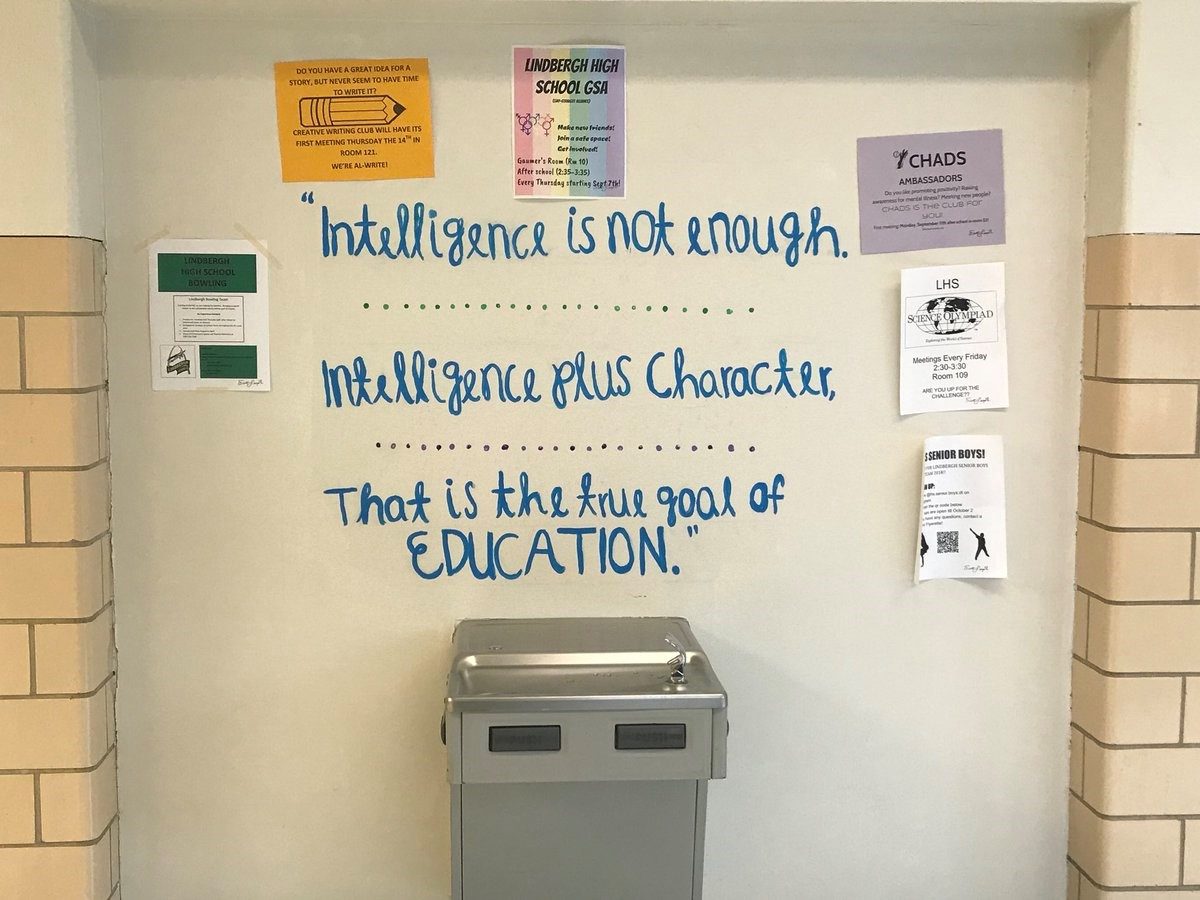 DO YOU HAVE A GREAT IDEA FOR A
STORY, BUT NEVER SEEM TO HAVE TIME
TO WRITE IT?
CREATIVE WRITING CLUB WILL HAVE ITS
FIRST MEETING THURSDAY THE 14TH IN
ROOM 121.
WE'RE AL-WRITE!
LINDBERGH HIGH
SCHOOL GSA
(GAY-STRAIGHT ALLIANCE)
Make new friends!
Join a safe space!
Get involved!
Gaumer's Room (Rm 10)
After school (2:35-3:35)
Every Thursday starting Sept 7th!
CHADS
AMBASSADORS
Do you like promoting positivity? Raising
awareness for mental illness? Meeting new people?
CHADS IS THE CLUB FOR
YOU!
First meeting: Monday, September 11th after school in room
LINDBERGH
HIGH SCHOOL
BOWLING
Lindbergh Bowling Team
"Intelligence is not enough.
Intelligence plus Character,
That is the true goal of
EDUCATION."
LHS
SCIENCE OLYMPIAD
Exploring the World of Science
Meetings Every Friday
2:30-3:30
Room 109
ARE YOU UP FOR THE
CHALLENGE??
S SENIOR BOYS!
FOR LINDBERGH SENIOR BOYS
UP:
senior boys dt on
the qr code below
are open till October 2
have any questions, contact a
PUSH
PUSH